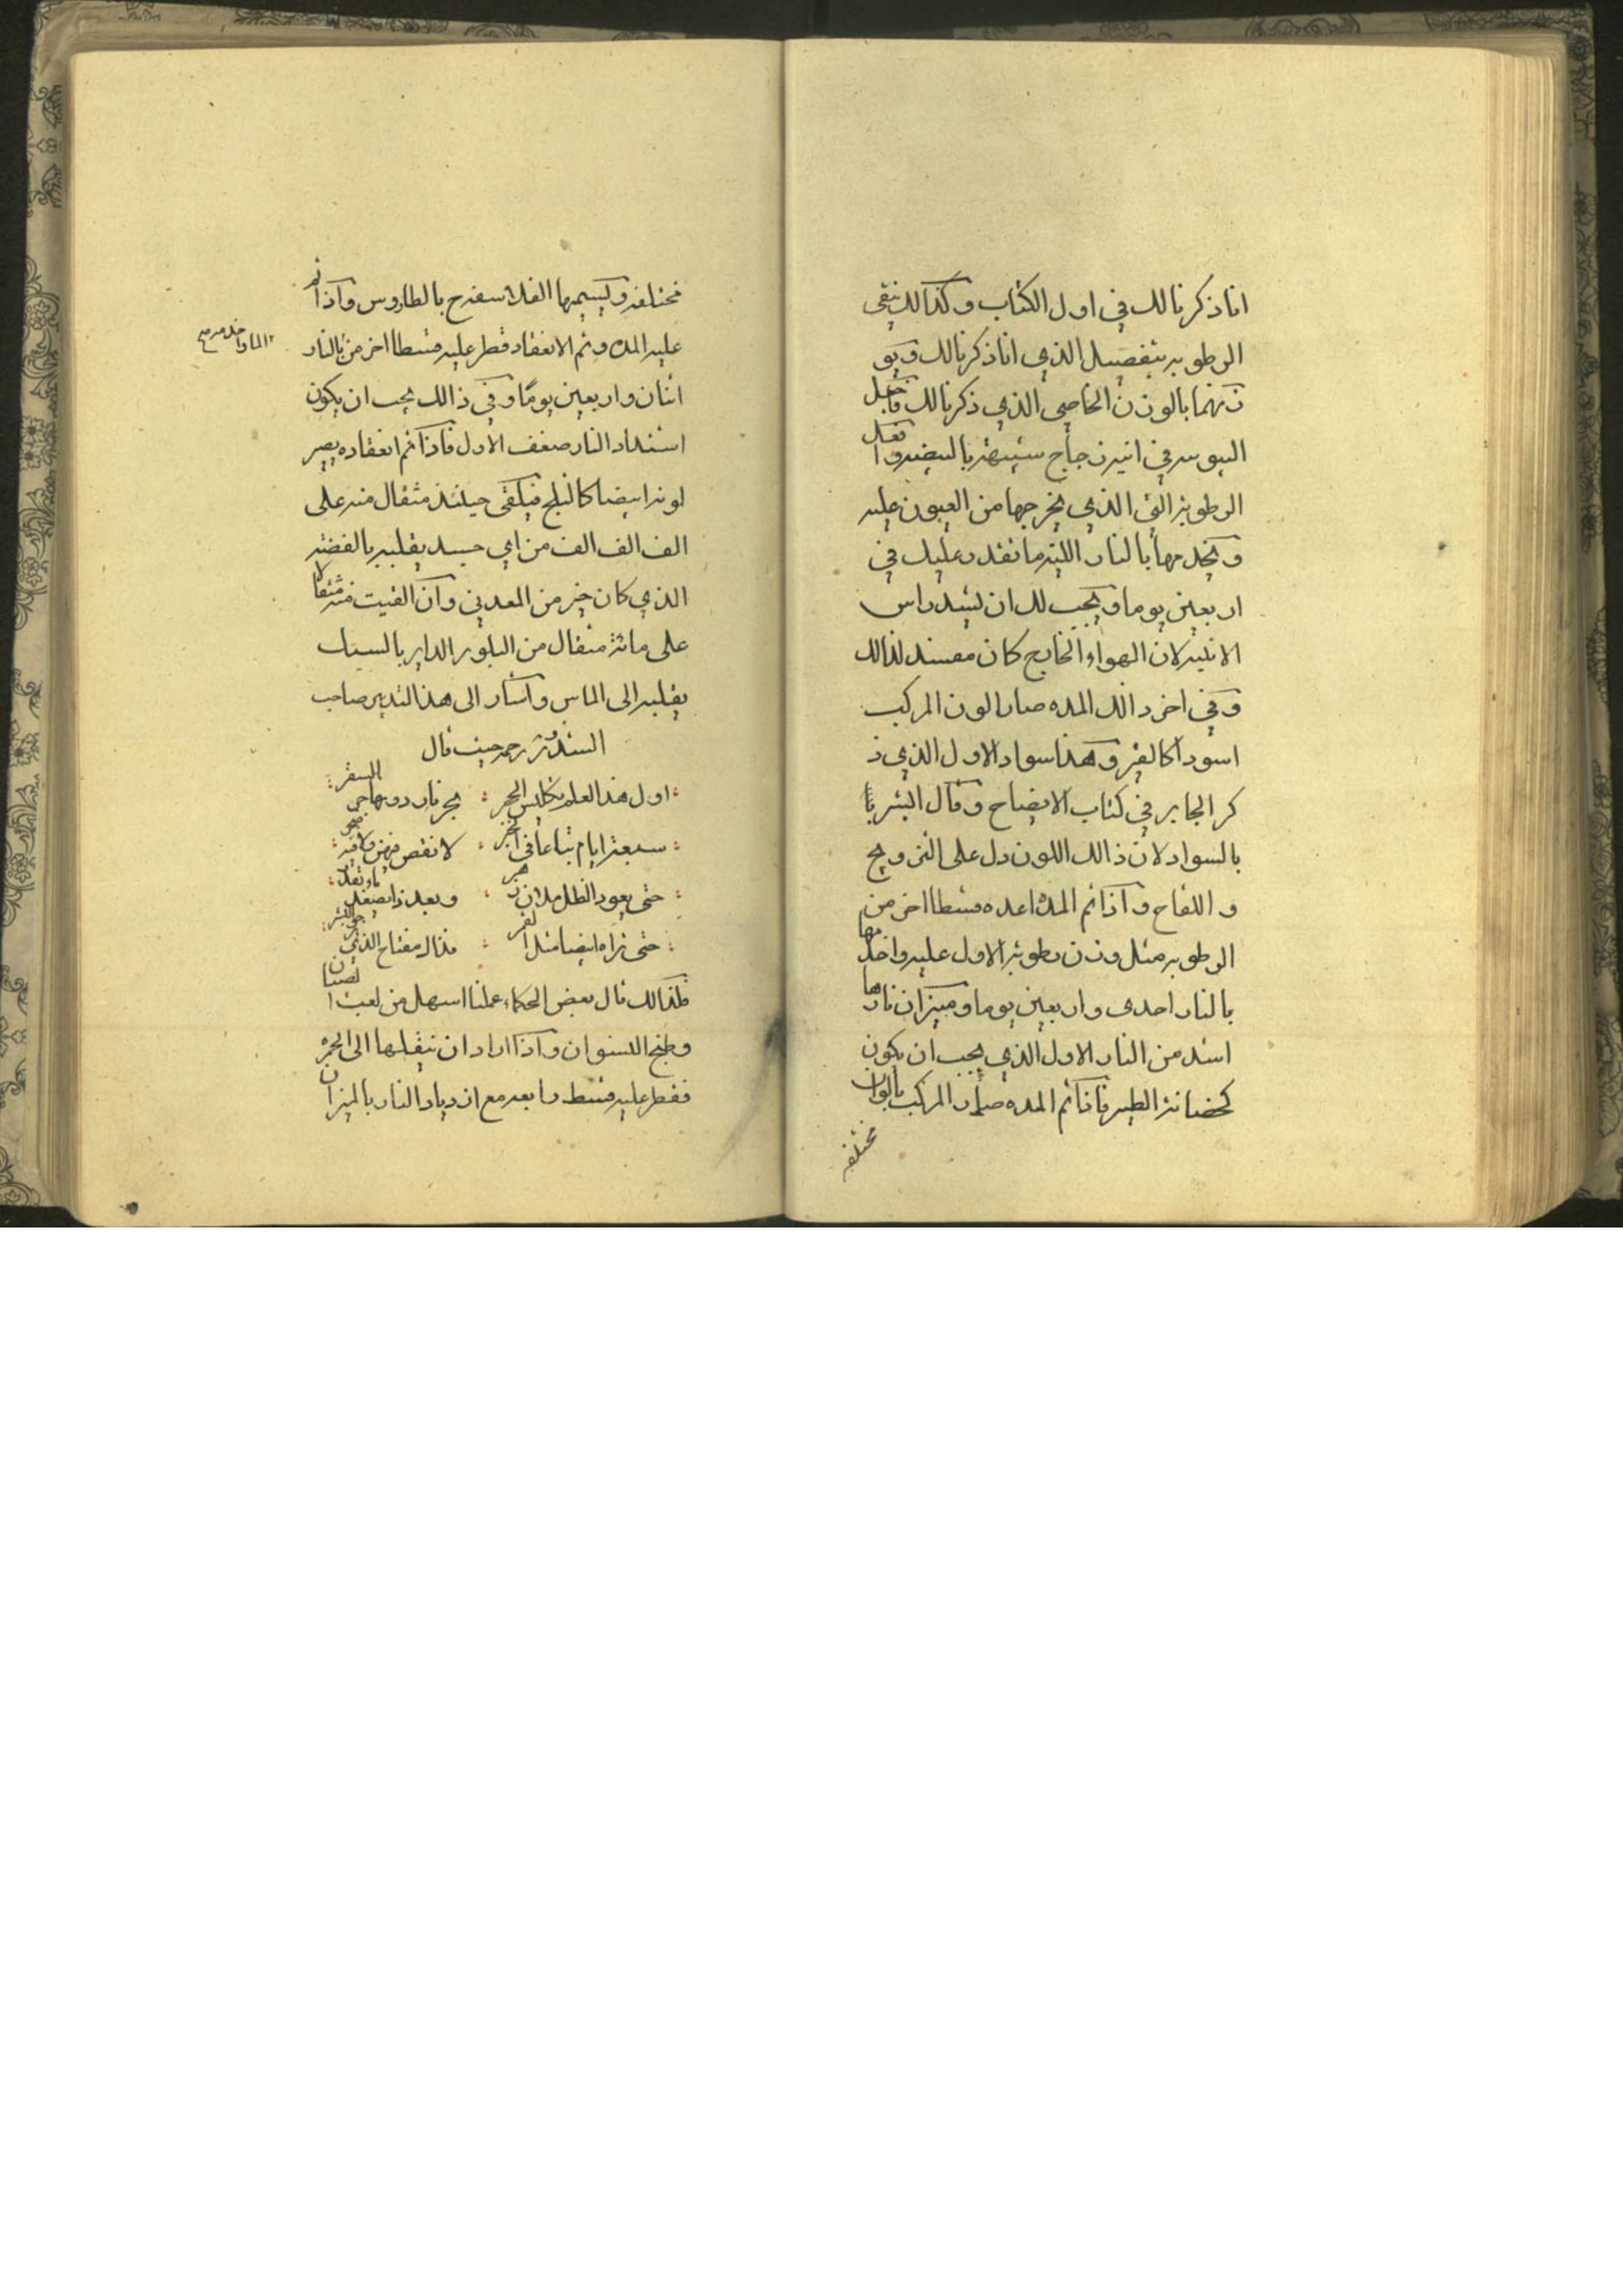 انا ذكرنا لك في اول الكتاب وكذالك ينقى
الرطوبه بتفصيل الذي انا ذكرنا لك ويو
زنهما بالوزن الخاصي الذي ذكرنا لك فاجعل
اليبوسه في انيه زجاج سبيهة بالبيضه و
الرطوبة التي الذي يخرجها من العيون عليه
بالنار اللينه ما تقدر عليك في
اربعين يوما ويجب لك ان ليشد راس
الانيه لان الهواء الخارج كان مفسد لذالك
وفي اخر ذالك المده صار الون المركب
اسودا كالقير وهذا سواد الاول الذي ذ
كر الجابر في كتاب الايضاح وقال البشر يا
بالسواد لان ذالك اللون دل على التزويج
و اللقاح واذا تم المده اعده قسطا اخر من
الرطوبه مثل وزن رطوبة الاول عليه واخدمها
بالنار احدى واربعين يوما وميزان نارها
اشد من النار الاول الذي يجب ان يكون
كحضانة الطير فاذا تم المده صار المركب بالوان
مختلفه
مختلفه وليسميها الفلاسفه بالطاوس واذا تم
عليه المده وتم الانعقاد قطر عليه قسطا اخر من بالنار
اثنان واربعين يوما وفي ذالك يجب ان يكون
اشتداد النار ضعف الاول فاذا تم انعقاده يصير
لونه ابيضا كالثلج فيلقى حينئذ مثقال منه على
الف الف الف من اي جسد يقلبه بالفضة
الذي كان خير من المعدني وان القيت منه مثقالا
على مائة مثقال من البلور الداير بالسبك
يقلبه الى الماس واشار الى هذا التدبير صاحب
الشذور رحمه حيث قال
اول هذا العلم تكليس الحجر : بحر نار دونها حر السقر
سبعة ايام تباعا في اخر : لا نقص فيهن ولا فيه
حتى يعود الظل ملان : وبعد ذا يصعد ماء
حتى تراه ابيضا مثل القمر : فذالك مفتاح الذي
فلذالك قال بعض الحكماء عملنا اسهل من لعب الصبيان
وطبخ النسوان واذا اراد ان ينقلها الى الحمره
فقطر عليه قسط رابعه مع ازدياد النار بالميزان